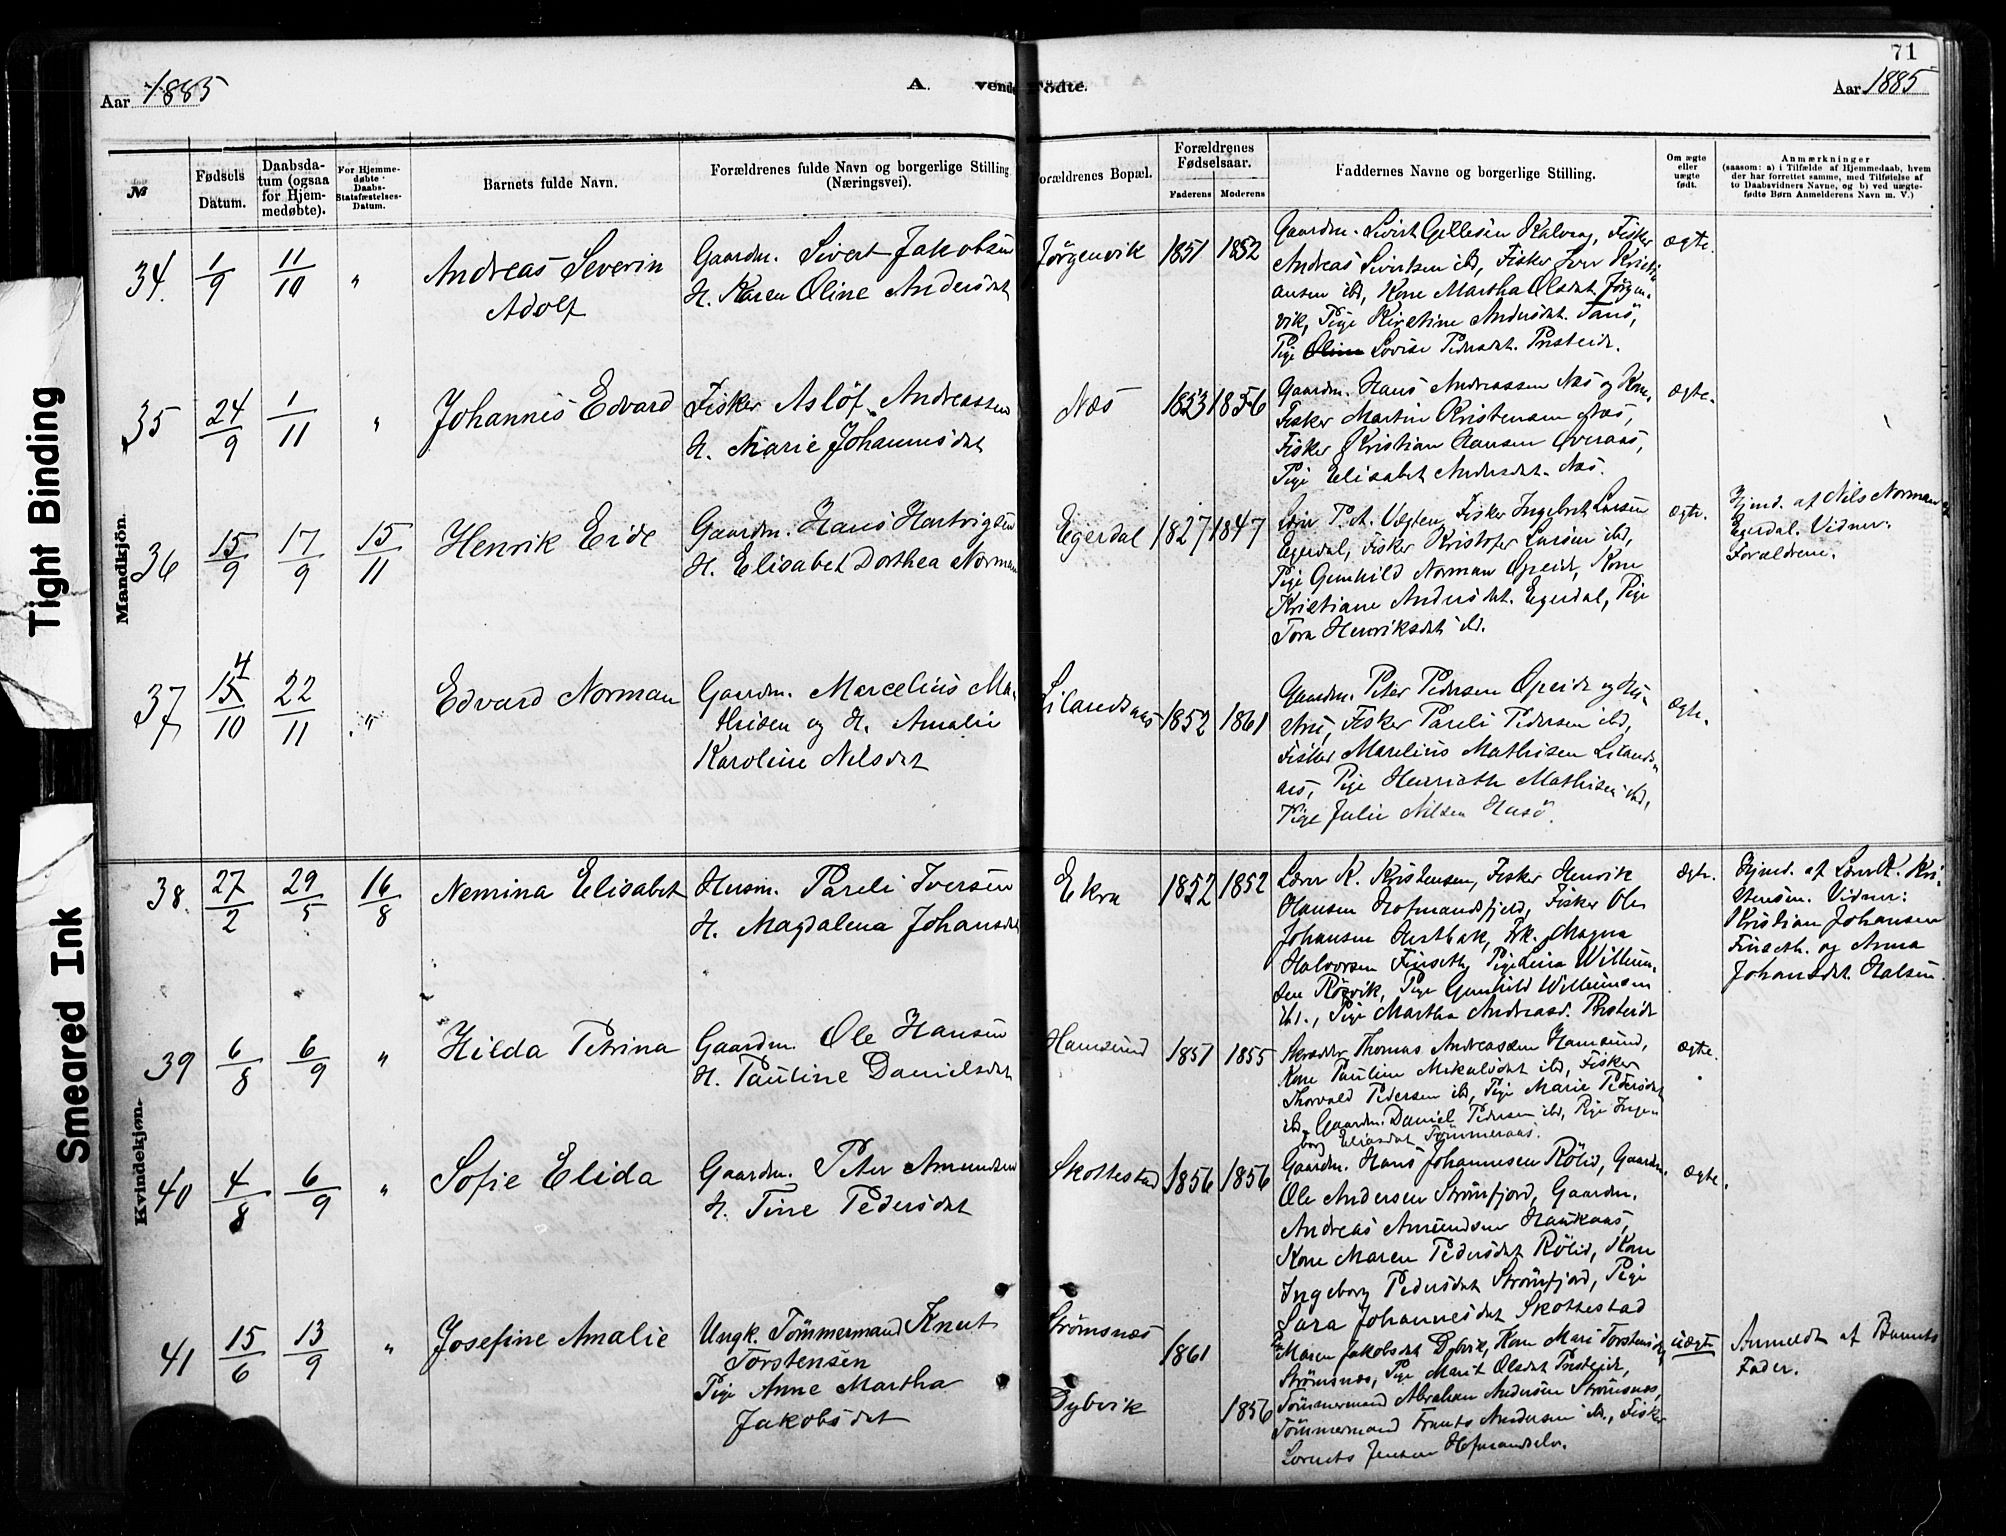 71
Aar 1885
A. vende Fødte.
Aar 1885
№
Fødsels Datum.
Daabsda-
tum (ogsaa
for Hjem-
medøbte).
For Hjemme-
døbte Daabs-
Stadsfæstelses-
Datum.
Barnets fulde Navn.
Forældrenes fulde Navn og borgerlige Stilling
(Næringsvei).
Forældrenes Bopæl.
Forældrenes
Fødselsaar.
Faderens Moderens
Faddernes Navne og borgerlige Stilling.
Om ægte
eller
uægte
født.
Anmærkninger
(saasom: a) i Tilfælde af Hjemmedaab, hvem
der har forrettet samme, med Tilføielse af
to Daabsvidners Navne, og b) ved uægte-
fødte Børn Anmelderens Navn m. V.)
Tight Binding
Smeared Ink
Mandkjön.
Kvindekjøn.
34. 1/9 11/10 "
Andreas Severin
Adolf
Gaardm. Sivert Jakobsen
H. Karen Oline Andersdat
Jørgenvik 1851 1852
Gaardm. Sivert Gellesen Kalvaag, Fisker
Andreas Sivertsen ibd, Fisker Iver Kristi
ansen ibd, Kone Martha Olsdat Jørgen-
vik, Pige Kirstine Andersdat. Tanö,
Pige Lovise Pedersdat. Presteid.
ægte.
35 24/9 1/11 "
Johannes Edvard
Fisker Asløf Andreassen
H. Marie Johannesdat
Næs 1853 1856
Gaardm. Hans Andreassen Næs og Kone,
Fisker Martin Kristensen Næs,
Fisker Kristian Hansen Øveraas,
Pige Elisabet Andersdat. Næs.
ægte.
36 15/9 17/9 15/11
Henrik Eide
Gaardm. Hans Hartvigsen
H. Elisabet Dorthea Norman
Egerdal 1827 1847
Lærer P. A. Vegten, Fisker Ingebret Larsen
Egerdal, Fisker Kristofer Larsen ibd,
Pige Gunhild Norman Opeid, Kone
Kristiane Andersdat. Egerdal, Pige
Tora Henriksdat ibd.
ægte.
Hjmd. af Nils Norman
Egerdal. Vidner:
Forældrene.
37 14/10 22/11 "
Edvard Norman
Gaardm. Marcelius Ma-
thisen og H. Amalie
Karoline Nilsdat
Lilandsaas 1852 1861
Gaardm. Peter Pedersen Opeid og Hu-
stru, Fisker Pareli Pedersen ibd,
Fisker Marelius Mathisen Lilands-
aas, Pige Henriette Mathisen ibd,
Pige Julie Nilsen Husö.
ægte.
38 27/2 29/5 16/8
Nemina Elisabet
Husm. Pareli Iversen
H. Magdalena Johansdat
Ekra 1852 1852
Lærer K. Kristensen, Fisker Henrik
Hansen Hofmandsfjeld, Fisker Ole
Johansen Hestbak, Frk. Magna
Halvorsen Finseth, Pige Lina Willum-
sen Rösvik, Pige Gunhild Willumsen
ibd., Pige Martha Andreasd. Presteid
ægte.
Hjmd. af Lærer K. Kri-
stensen. Vidner:
Kristian Johansen
Finseth. og Anna
Johansdat Halsen
39 6/8 6/9 "
Hilda Petrina
Gaardm. Ole Hansen
H. Pauline Danielsdat
Hamsund 1851 1855
Skrædder Thomas Andreassen Hamsund,
Kone Pauline Mekalsdat ibd, Fisker
Thorvald Pedersen ibd, Pige Marie Pedersdat
ibd Gaardm. Daniel Pedersen ibd, Pige Inge-
borg Eliasdat Tømmeraas.
ægte.
40 4/8 6/9 "
Sofie Elida
Gaardm. Peter Amundsen
H. Tine Pedersdat
Skottestad 1856 1856
Gaardm. Hans Johannesen Rölid, Gaardm.
Ole Andersen Strømfjord, Gaardm.
Andreas Amundsen Haukaas,
Kone Maren Pedersdat Rölid, Kone
Ingeborg Pedersdat Strømfjord, Pige
Sara Johannesdat Skottestad
ægte.
41 15/6 13/9 "
Josefine Amalie
Ungk. Tömmermand Knut
Torstensen
Pige Anne Martha
Jakobsdat
Strømsnæs 1861
Dybvik 1856
Pige Maren Jakobsdat Dybvik, Kone Mari Torstensd.
Strømsnæs, Pige Marit Olsdat Presteid,
Tömmermand Abraham Andersen Strømsnæs,
Tömmermand Frants Andersen ibd., Fisker
Lorents Jentsen Hofmandselv.
uægte
Anmeldt af Barnets
Fader.